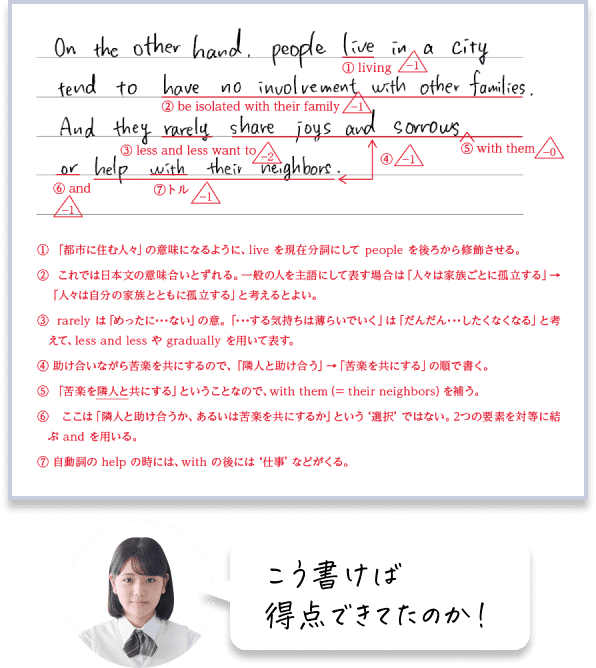 On the other hand, people live in a city
① living -1
tend to have no involvement with other families.
② be isolated with their family -1
And they rarely share joys and sorrows
③ less and less want to -2 ④ -1 ⑤ with them -0
or help with their neighbors.
⑥ and -1 ⑦トル -1
① 「都市に住む人々」の意味になるように、live を現在分詞にして people を後ろから修飾させる。
② これでは日本文の意味合いとずれる。一般の人を主語にして表す場合は「人々は家族ごとに孤立する」→
「人々は自分の家族とともに孤立する」と考えるとよい。
③ rarely は「めったに･･･ない」の意。「･･･する気持ちは薄らいでいく」は「だんだん･･･したくなくなる」と考
えて、less and less や gradually を用いて表す。
④ 助け合いながら苦楽を共にするので、「隣人と助け合う」→「苦楽を共にする」の順で書く。
⑤ 「苦楽を隣人と共にする」ということなので、with them (= their neighbors) を補う。
⑥ ここは「隣人と助け合うか、あるいは苦楽を共にするか」という‘選択’ではない。2つの要素を対等に結
ぶ and を用いる。
⑦ 自動詞の help の時には、with の後には‘仕事’などがくる。
こう書けば
得点できてたのか！